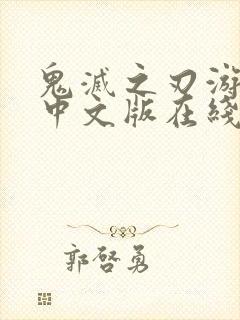 鬼滅之刃游
中文版在綫
郭啓勇